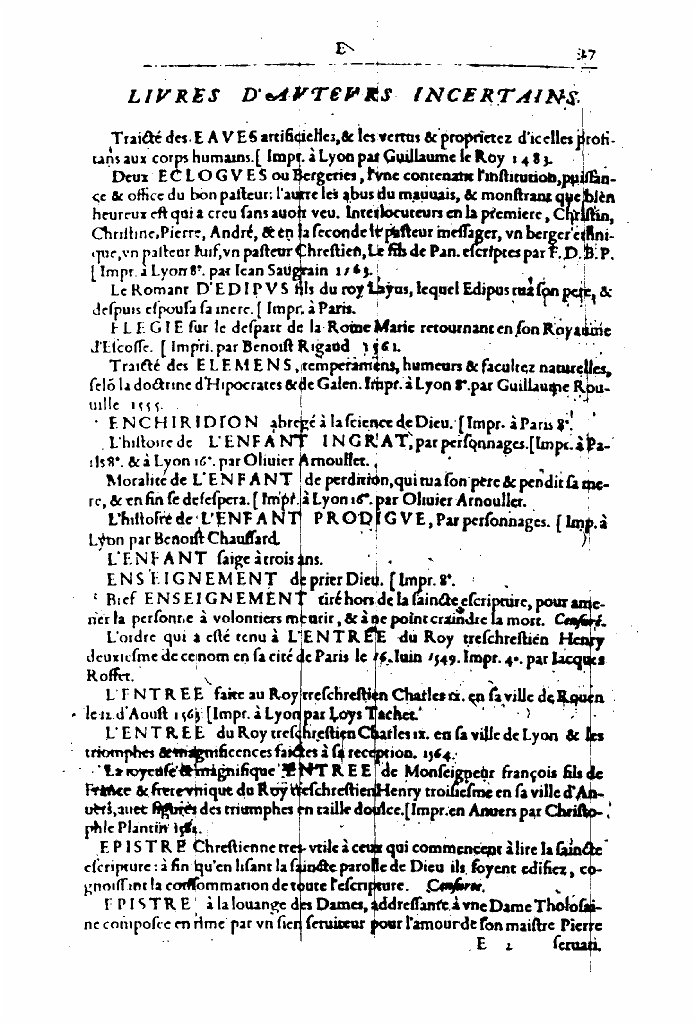 E
LIVRES D'AVTEVRS INCERTAINS.
Traicté des EAVES artificielles,& les vertus & proprietez d'icelles profi-
tans aux corps humains.[ Impr. à Lyon par Guillaume le Roy 1483.
Deux ECLOGVES ou Bergeries, l'vne contenant l'institution,puissan-
ce & office du bon pasteur: l'autre les abus du mauuais, & monstrant que bien
heureux est qui a creu sans auoir veu. Interlocuteurs en la premiere, Christin,
Christine,Pierre, André, & en la seconde le pasteur messager, vn berger ethni-
que,vn pasteur Juif,vn pasteur Chrestien,Le fils de Pan. escriptes par F.D.B.P.
[Impr. à Lyon 8°. par Iean Saugrain 1563.
Le Romant D'EDIPVS fils du roy Layus, lequel Edipus tua son pere, &
despuis espousa sa mere. [ Impr. à Paris.
ELEGIE sur le despart de la Roine Marie retournant en son Royaume
d'Escosse. [ Impri. par Benoist Rigaud 1561.
Traicté des ELEMENS, temperamens, humeurs & facultez naturelles,
selō la doctrine d'Hipocrates & de Galen. Impr. à Lyon 8°.par Guillaume Rou-
uille 1555.
ENCHIRIDION abregé à la science de Dieu. [Impr. à Paris 8°.
L'histoire de L'ENFANT INGRAT, par personnages.[Impr. à Pa-
ris 8°. & à Lyon 16°. par Oliuier Arnoullet.
Moralité de L'ENFANT de perdition,qui tua son pere & pendit sa me-
re, & en fin se desespera. [ Impr. à Lyon 16°. par Oliuier Arnoullet.
L'histoire de L'ENFANT PRODIGVE, Par personnages. [ Imp. à
Lyon par Benoist Chauffard.
L'ENFANT saige à trois ans.
ENSEIGNEMENT de prier Dieu. [ Impr. 8°.
Brief ENSEIGNEMENT tiré hors de la saincte escripture, pour ame-
ner la personne à volontiers mourir, & à ne point craindre la mort. Censuré.
L'ordre qui a esté tenu à L'ENTREE du Roy treschrestien Henry
deuxiesme de ce nom en sa cité de Paris le 16. Iuin 1549. Impr. 4°. par Iacques
Roffet.
L'ENTREE faite au Roy treschrestien Charles ix. en sa ville de Rouen
le 12. d'Aoust 1563 [Impr. à Lyon par Loys Tachet.
L'ENTREE du Roy treschrestien Charles ix. en sa ville de Lyon & les
triomphes & magnificences faictes à sa reception. 1564.
La royeuse & magnifique ENTREE de Monseigneur françois fils de
France & frere vnique du Roy treschrestien Henry troisiesme en sa ville d'An-
uers, auec figures des triumphes en taille doulce.[Impr. en Anuers par Christo-
phle Plantin 1582.
EPISTRE Chrestienne tres-vtile à ceux qui commencent à lire la saincte
escripture: à fin qu'en lisant la saincte parolle de Dieu ils soyent edifiez, co-
gnoissant la consommation de toute l'escripture. Censurée.
EPISTRE à la louange des Dames, addressante à vne Dame Tholosai-
ne composée en rime par vn sien seruiteur pour l'amour de son maistre Pierre
E 2 seruati.